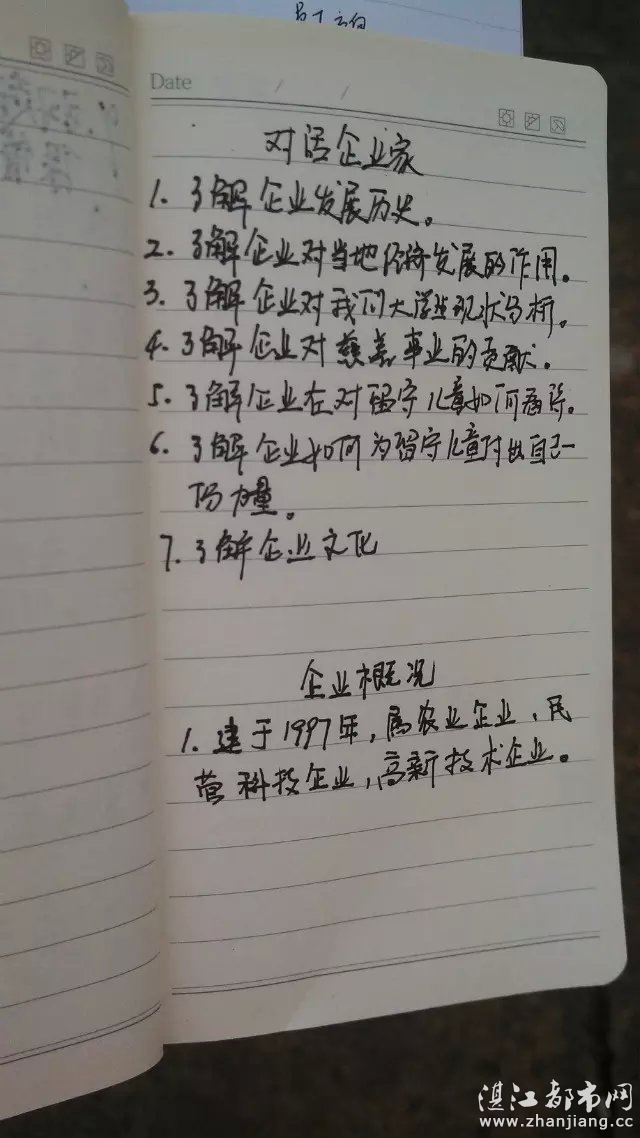 Date / /
对话企业家
1. 了解企业发展历史。
2. 了解企业对当地经济发展的作用。
3. 了解企业对我们大学生现状分析。
4. 了解企业对慈善事业的贡献。
5. 了解企业在对留守儿童如何
6. 了解企业如何为留守儿童付出自己一
份力量。
7. 了解企业文化
企业概况
1. 建于1997年，属农业企业、民
营科技企业，高新技术企业。
湛江都市网
www.zhanjiang.cc